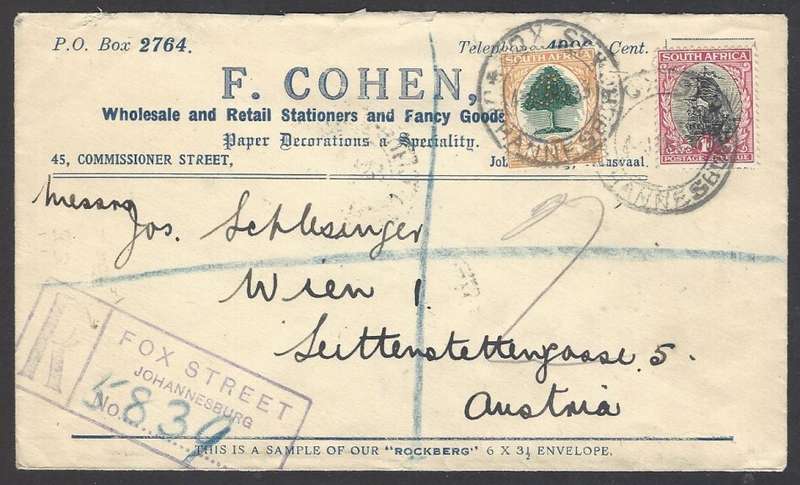 P.O. Box 2764.
Telephone Cent.
F. COHEN,
Wholesale and Retail Stationers and Fancy Goods
Paper Decorations a Speciality.
45, COMMISSIONER STREET,
SOUTH AFRICA
SOUTH AFRICA
POSTAGE
FOX ST.
JOHANNESBURG
Messrs
Jos. Schlesinger
Wien 1.
Seittenstettengasse 5.
Austria
R
FOX STREET
JOHANNESBURG
No. 5839
THIS IS A SAMPLE OF OUR "ROCKBERG" 6 X 3½ ENVELOPE.